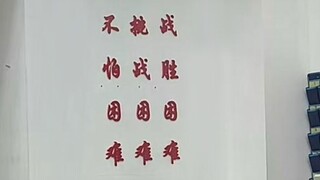 不怕困难
挑战困难
战胜困难